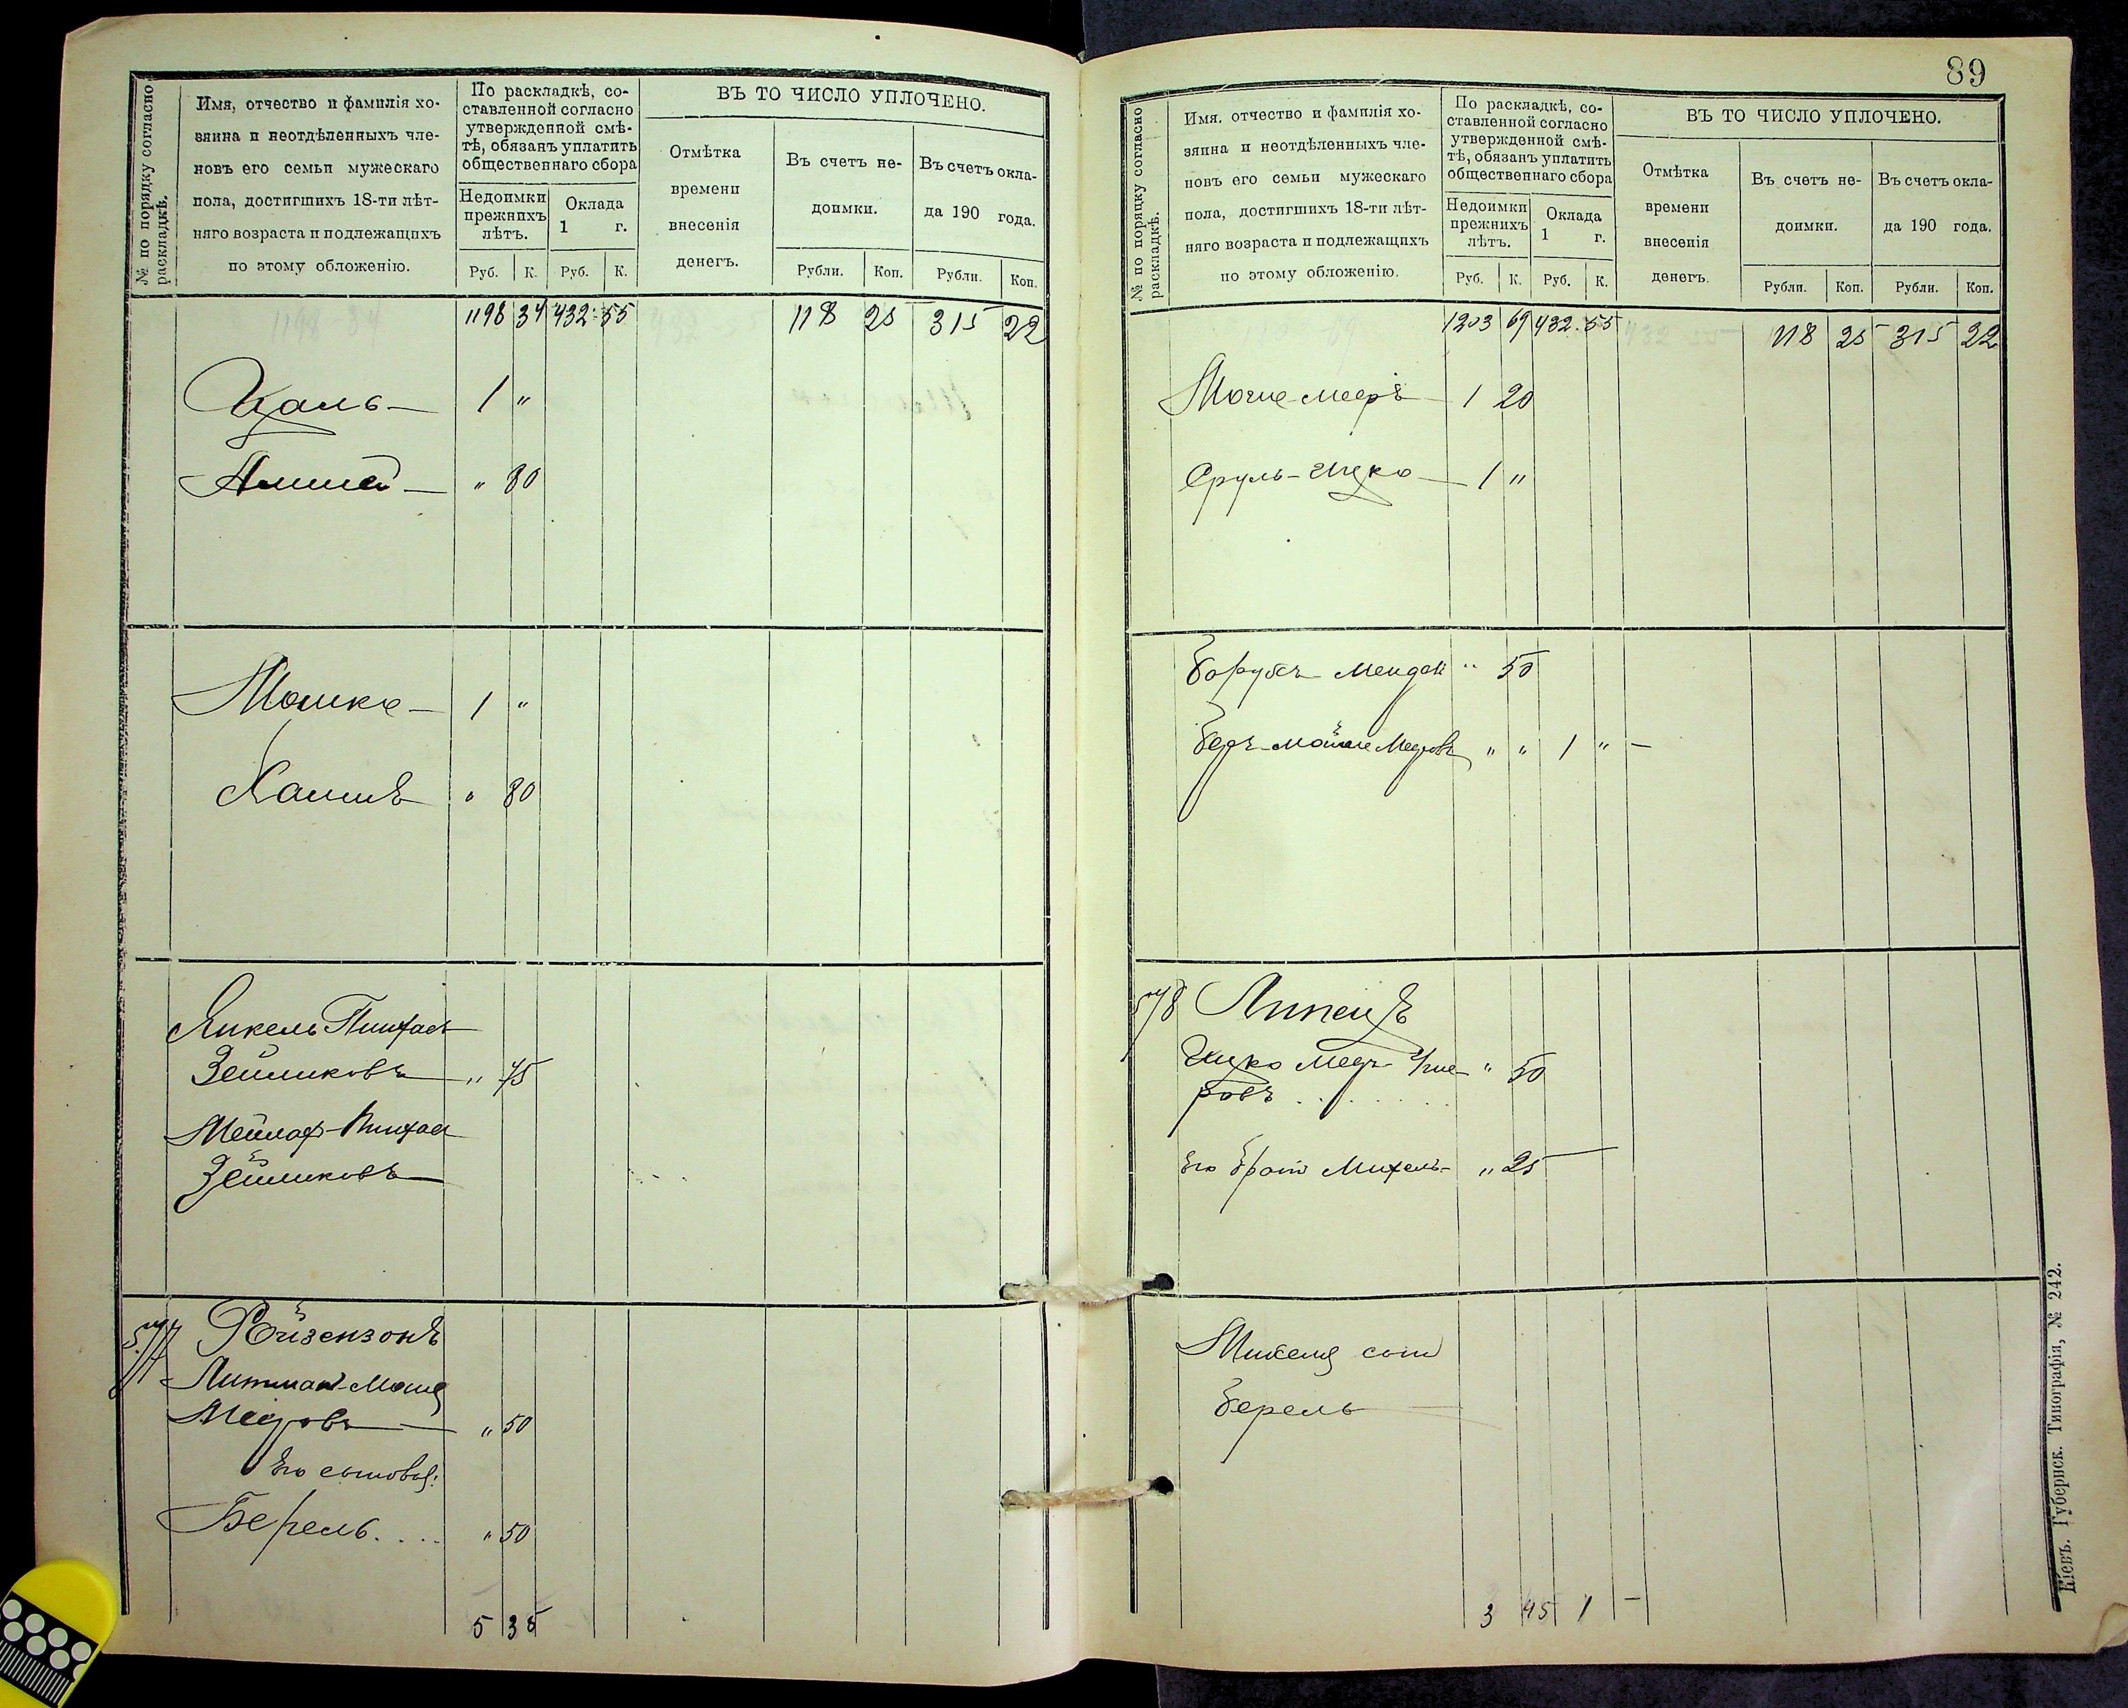 № по порядку согласно
раскладкѣ.
Имя, отчество и фамилія хо-
зяина и неотдѣленныхъ чле-
новъ его семьи мужескаго
пола, достигшихъ 18-ти лѣт-
няго возраста и подлежащихъ
по этому обложенію.
По раскладкѣ, со-
ставленной согласно
утвержденной смѣ-
тѣ, обязанъ уплатить
общественнаго сбора
Недоимки
прежнихъ
лѣтъ.
Оклада
1 г.
Руб. К. Руб. К.
ВЪ ТО ЧИСЛО УПЛОЧЕНО.
Отмѣтка
времени
внесенія
денегъ.
Въ счетъ не-
доимки.
Въ счетъ окла-
да 190 года.
Рубли. Коп. Рубли. Коп.
1198 34 432 55 118 25 315 22
Ицаль 1 "
" 80
Мошко 1 "
Хаимъ " 80
Янкель Пинхасъ
Зейликовъ " 75
Мейлахъ-Пинхас
Зейликовъ
577 Ройзензонъ
Литман-Мошя
Меировъ " 50
Его сыновья:
Берель.... " 50
5 35
89
№ по порядку согласно
раскладкѣ.
Имя. отчество и фамилія хо-
зяина и неотдѣленныхъ чле-
новъ его семьи мужескаго
пола, достигшихъ 18-ти лѣт-
няго возраста и подлежащихъ
по этому обложенію.
По раскладкѣ, со-
ставленной согласно
утвержденной смѣ-
тѣ, обязанъ уплатить
общественнаго сбора
Недоимки
прежнихъ
лѣтъ.
Оклада
1 г.
Руб. К. Руб. К.
ВЪ ТО ЧИСЛО УПЛОЧЕНО.
Отмѣтка
времени
внесенія
денегъ.
Въ счетъ не-
доимки.
Въ счетъ окла-
да 190 года.
Рубли. Коп. Рубли. Коп.
1203 69 432 55 118 25 315 22
Мошко-Мееръ 1 20
Сруль-Ицко 1 "
Борухъ Мендель " 50
Беръ-Мойше Меировъ " " 1 " —
578 Липецъ
Ицко Меер
ровъ " 50
Его братъ Михель " 25
Михеля сынъ
Берель
3 45 1 —
Кіевъ. Губернск. Типографія, № 242.